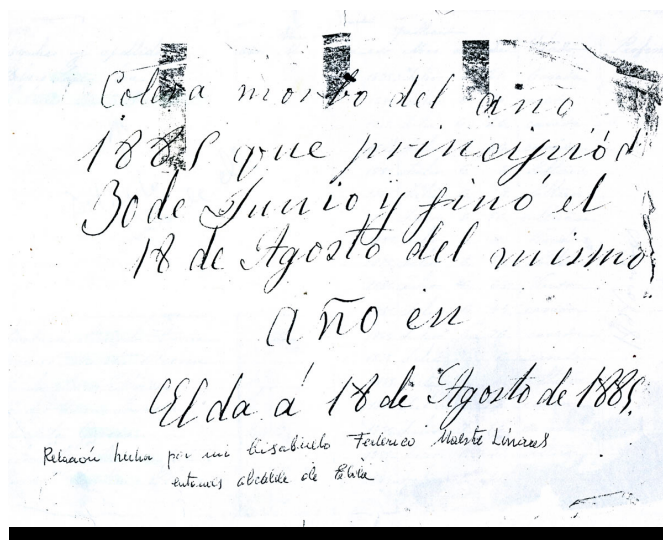 Colera morbo del año
1885 que principió el
30 de Junio y finó el
18 de Agosto del mismo
año en
Elda á 18 de Agosto de 1885.
Relación hecha por mi bisabuelo Federico Maestre Linares
entonces alcalde de Elda